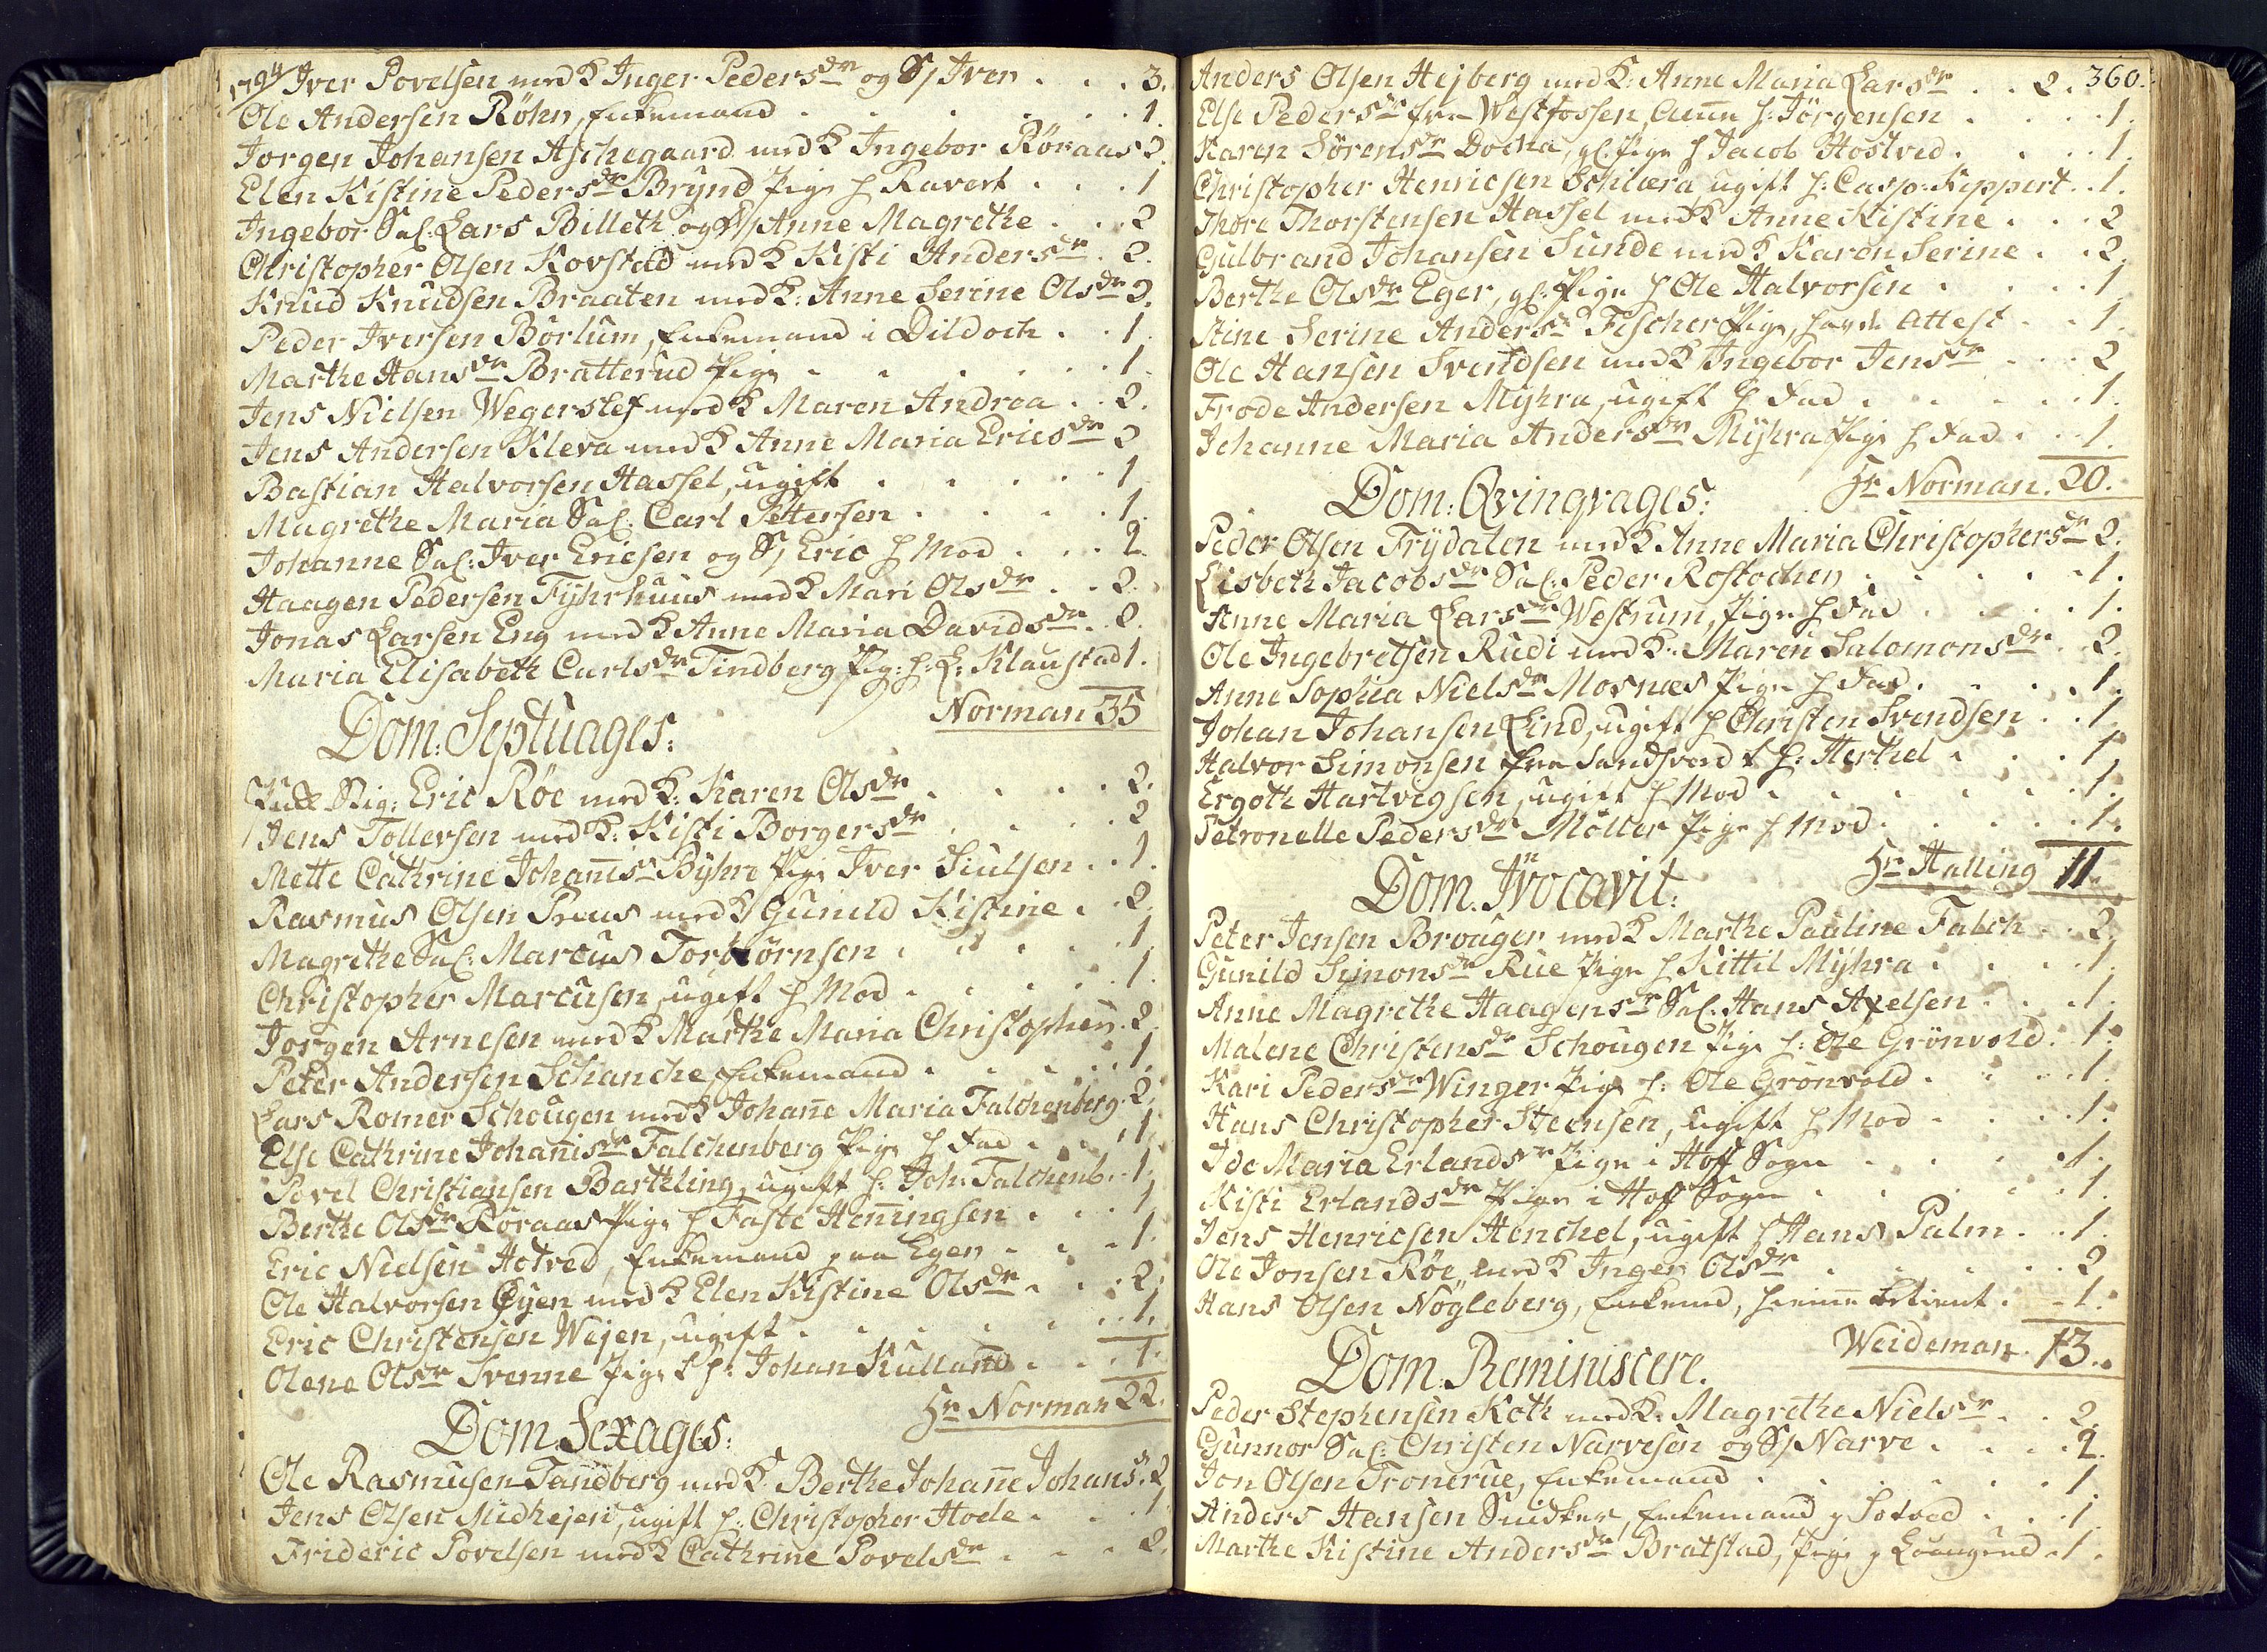 1794 Iver Povelsen med K Inger Pedersdr og S/ Iver . . . 3.
Ole Andersen Röhn, Enkemand . . . 1.
Jorgen Johansen Aschegaard med K Ingebor Röraas 2.
Elen Kistine Pedersdr Brynd Pige h Ravert . . . 1
Ingebor Sal. Lars Billeth og D/ Anne Magrethe . . 2
Christopher Olsen Kovstad med K Kisti Andersdr . 2.
Knud Knudsen Braaten med K: Anne Serine Olsdr 2.
Peder Iversen Börlum, Enkemand i Dildoch . . 1.
Marthe Hansdr Bratterud Pige . . . 1.
Jens Nielsen Wegerslef med K Maren Andrea . . 2.
Jens Andersen Kleva med K Anne Maria Ericsdr 2
Bastian Halvorsen Hassel, ugift . . . 1
Magrethe Maria Sal. Carl Petersen . . . 1.
Johanne Sal: Iver Ericsen og S/ Eric h Mod . . . 2.
Haagen Pedersen Fyhrhuus med K Mari Olsdr . . 2.
Jonas Larsen Eng med K Anne Maria Davidsdr . 2.
Maria Elisabeth Carlsdr Tindberg Pig: h: L: Klaustad 1.
Norman 35
Dom: Septuages:
Sig: Eric Röe med K: Karen Olsdr . . . 2.
Jens Tollersen med K: Kisti Borgersdr . . . 2
Mette Cathrine Johannisdr Byhre Pige Iver Siulsen . . 1.
Rasmus Olsen Preus med K Gunild Kistine . . 2.
Magrethe Sal: Marcus Torbiörnsen . . . 1.
Christopher Marcusen, ugift h Mod . . . 1.
Jorgen Arnesen med K Marthe Maria Christophers . 2.
Peter Andersen Schanche, Enkemand . . . 1.
Lars Romer Schougen med K Johanne Maria Falchenberg . 2.
Else Cathrine Johannisdr Falchenberg Pige h Fad . . . 1
Povel Christiansen Barthling, ugift h: Joh: Falchenb. . 1.
Berthe Olsdr Röraas Pige h Faste Henningsen . . . 1
Eric Nielsen Hotved, Enkemand paa Egen . . . 1.
Ole Halvorsen Öyen med K Elen Kistine Olsdr . . . 2.
Eric Christensen Wejen, ugift . . . 1.
Olene Olsdr Svenne Pige h: Johan Kulland . . . 1.
Hr Norman 22.
Dom. Sexages:
Ole Rasmusen Tandberg med K Berthe Johanne Johansdr . 2
Jens Olsen Midhejen, ugift h: Christopher Hode . . . 1
Frideric Povelsen med K Cathrine Povelsdr . . . 2.
360.
Anders Olsen Hejberg med K: Anne Maria Larsdr . . 2.
Else Pedersdr fra Westfossen, Amme h: Jörgensen . . . 1.
Karen Sörensdr Docka, gl. Pige h Jacob Hostved . . . 1.
Christopher Henricsen Schlæra ugift h: Casp: Kippert . . 1.
Thore Thorstensen Hassel med K Anne Kistine . . . 2
Gulbrand Johansen Sunde med K Karen Serine . . 2.
Berthe Olsdr Eger, gl: Pige h Ole Halvorsen . . . 1
Stine Serine Andersdr Fischer Pige, havde Attest . . 1.
Ole Hansen Svendsen med K Ingebor Jensdr . . . 2
Frode Andersen Myhra, ugift h Fad . . . 1.
Johanne Maria Andersdr Myhra Pige h Fad . . . 1.
Hr Norman. 20.
Dom: Qvinqvages:
Peder Olsen Frydalen med K Anne Maria Christophersdr 2.
Lisbeth Jacobsdr Sal. Peder Rostochen . . . 1.
Anne Maria Larsdr Westrum, Pige h Fad . . . 1.
Ole Ingebretsen Rudi med K: Maren Salomonsdr . 2.
Anne Sophia Nielsdr Mosnæs Pige h Fad . . . 1.
Johan Johansen Lind, ugift h Christen Svendsen . . 1.
Halvor Simonsen fra Sandsverd h: Herthel . . . 1
Ergoth Hartvigsen, ugift h Mod . . . 1.
Petronelle Pedersdr Möller Pige h Mod . . . 1.
Hr Halling 11
Dom. Invocavit:
Peter Jensen Brouger med K Marthe Pauline Falch . . 2.
Gunild Simonsdr Rue Pige h Kittil Myhra . . . 1.
Anne Magrethe Haagensdr Sal: Hans Axelsen . . . 1.
Malene Christensdr Schougen Pige h: Ole Grönvold . 1.
Kari Pedersdr Winger Pige h: Ole Grönvold . . . 1.
Hans Christopher Steensen, ugift h Mod . . . 1.
Ide Maria Erlandsdr Pige i Hoff Sogn . . . 1.
Kisti Erlandsdr Pige i Hoff Sogn . . . 1.
Jens Henricsen Henchel, ugift h Hans Palm . . . 1.
Ole Jonsen Röe med K Inger Olsdr . . . 2
Hans Olsen Nögleberg, Enkemd, betient . . 1.
Weideman . 13.
Dom. Reminiscere.
Peder Stephensen Koth med K: Magrethe Nielsdr . . 2.
Gunnor Sal: Christen Narvesen og S/ Narve . . . 2.
Jon Olsen Tronerue, Enkemand . . . 1.
Anders Hansen Snidker, Enkemand p Sotved . . . 1.
Marthe Kistine Andersdr Bratstad, Pige p Laangrud . 1.